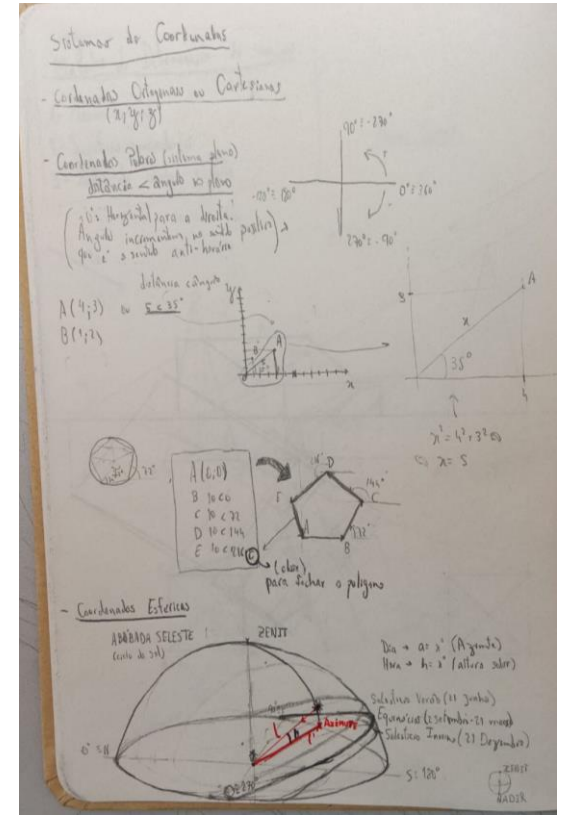 Sistemas de Coordenadas
- Cordenadas Ortogonais ou Cartesianas
(x; y; z)
- Coordenadas Polares (sistema plano)
distância < ângulo no plano
90° = -270°
0° = 360°
-180° = 180°
270° = -90°
0° = Horizontal para a direita.
Angulo incrementa, no sentido positivo
que é o sentido anti-horário
distância < ângulo
A (4; 3) ou 5 < 35°
B (1; 2)
y
B
A
x
3
A
x
35°
4
x² = 4² + 3²
x = 5
72°
A (0,0)
B 10<0
C 10<72
D 10<144
E 10<216
C
D
144°
E
C
A
B
72°
(close)
para fechar o polígono
- Coordenadas Esféricas
ABÓBADA SELESTE
ZENIT
Dia → a = x° (Azimute)
Hora → h = x° (altura solar)
Solestício Verão (21 Junho)
Equinócios (21 setembro - 21 março)
Solestício Inverno (21 Dezembro)
Azimute
h
S: 180°
ZENIT
NADIR